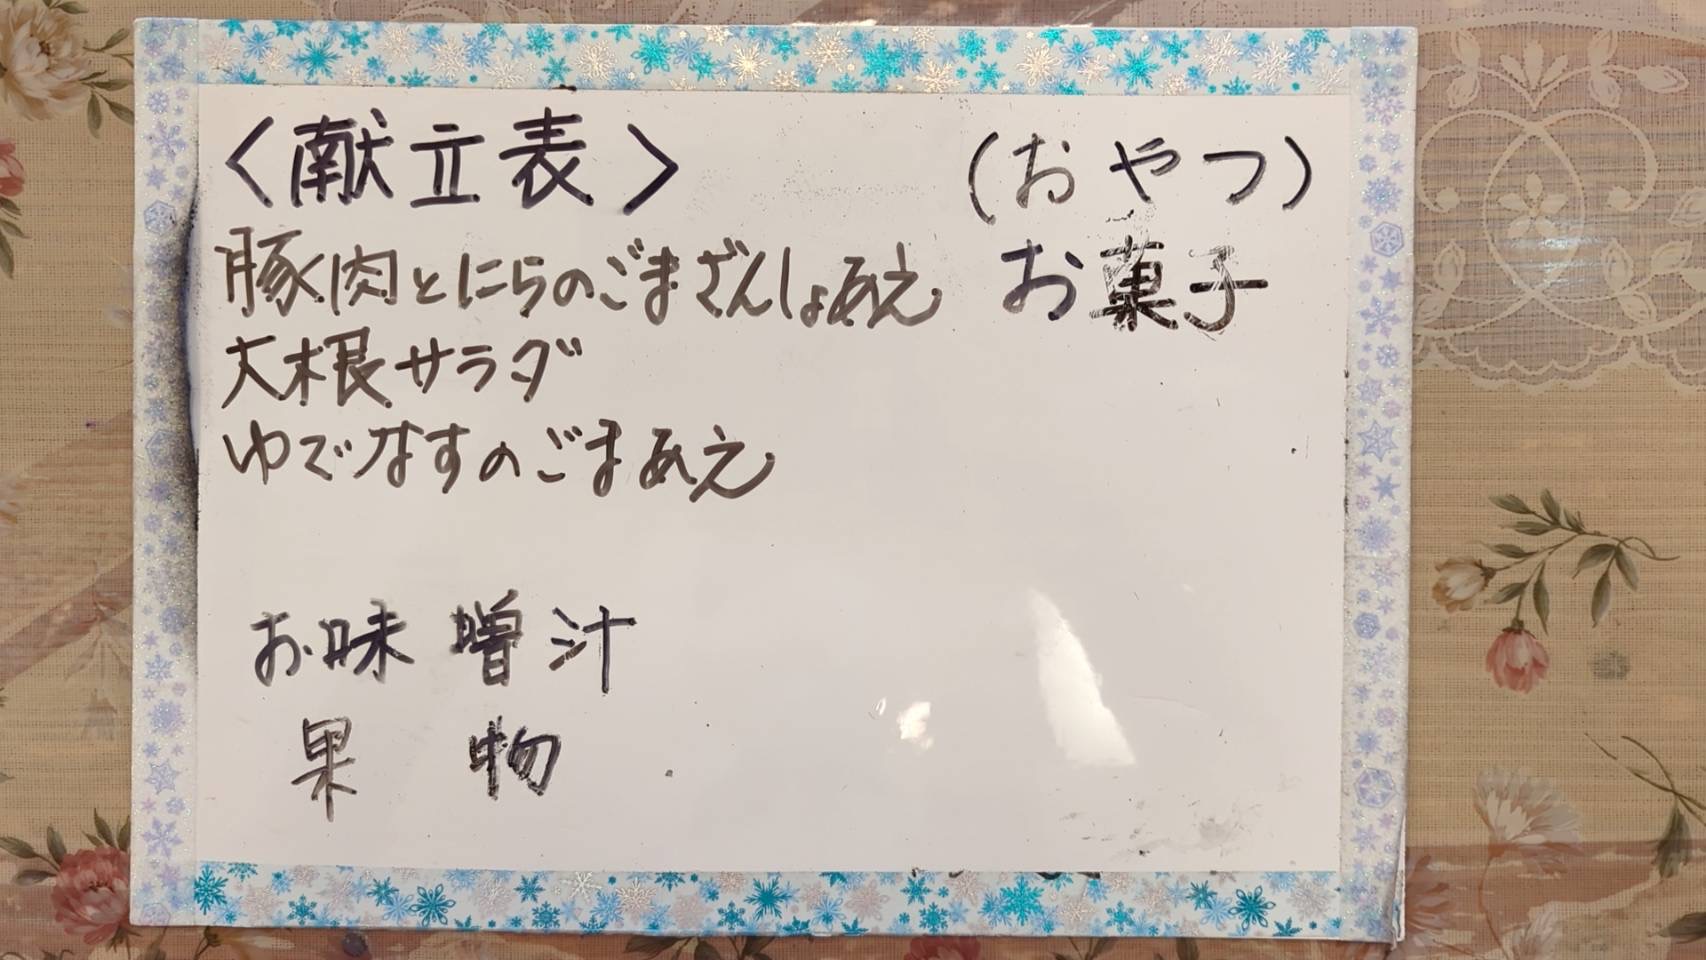 〈献立表〉
豚肉とにらのごまざんしょあえ
大根サラダ
ゆでなすのごまあえ
お味噌汁
果物
(おやつ)
お菓子